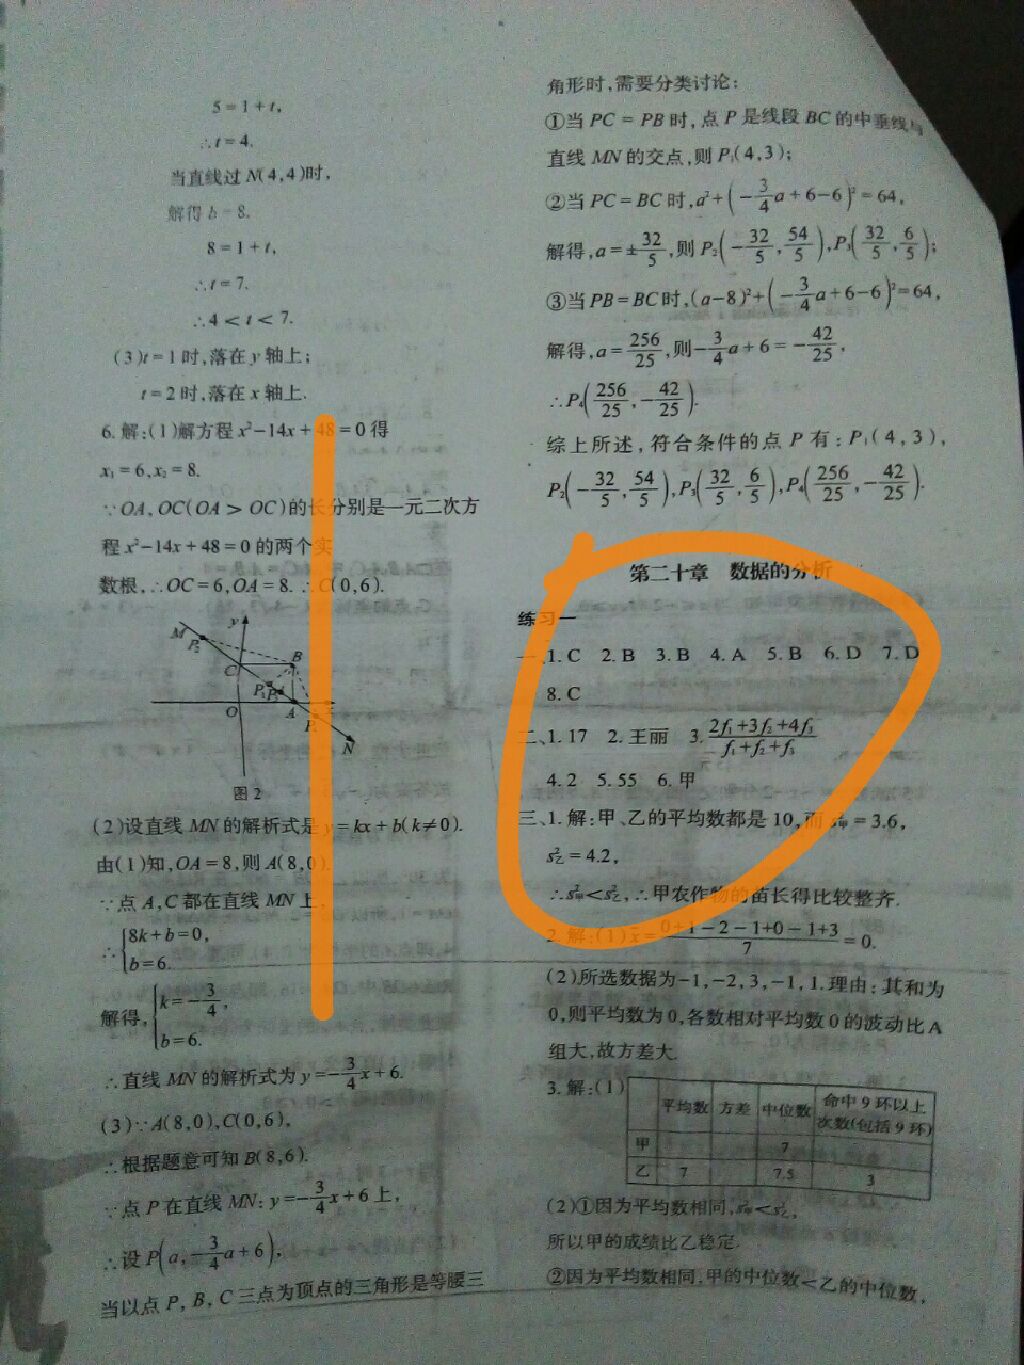 5=1+t,
∴t=4.
当直线过N(4,4)时,
解得b=8.
8=1+t,
∴t=7.
∴4<t<7.
(3)t=1时,落在y轴上;
t=2时,落在x轴上.
6.解:(1)解方程x²-14x+48=0得
x₁=6,x₂=8.
∵OA,OC(OA>OC)的长分别是一元二次方
程x²-14x+48=0的两个实
数根,∴OC=6,OA=8.∴C(0,6).
M P₂ y
C B
P₃ P₁
O A P₄
N
图2
(2)设直线MN的解析式是y=kx+b(k≠0).
由(1)知,OA=8,则A(8,0).
∵点A,C都在直线MN上,
∴{8k+b=0,
b=6.
解得,{k=-3/4,
b=6.
∴直线MN的解析式为y=-3/4x+6.
(3)∵A(8,0),C(0,6),
∴根据题意可知B(8,6).
∵点P在直线MN:y=-3/4x+6上,
∴设P(a,-3/4a+6),
当以点P,B,C三点为顶点的三角形是等腰三
角形时,需要分类讨论:
①当PC=PB时,点P是线段BC的中垂线与
直线MN的交点,则P₁(4,3);
②当PC=BC时,a²+(-3/4a+6-6)²=64,
解得,a=±32/5,则P₂(-32/5,54/5),P₃(32/5,6/5);
③当PB=BC时,(a-8)²+(-3/4a+6-6)²=64,
解得,a=256/25,则-3/4a+6=-42/25,
∴P₄(256/25,-42/25).
综上所述,符合条件的点P有:P₁(4,3),
P₂(-32/5,54/5),P₃(32/5,6/5),P₄(256/25,-42/25).
第二十章 数据的分析
练习一
一、1.C 2.B 3.B 4.A 5.B 6.D 7.D
8.C
二、1.17 2.王丽 3.(2f₁+3f₂+4f₃)/(f₁+f₂+f₃)
4.2 5.55 6.甲
三、1.解:甲、乙的平均数都是10,而s²甲=3.6,
s²乙=4.2,
∴s²甲<s²乙,∴甲农作物的苗长得比较整齐.
2.解:(1)x̄=(0+1-2-1+0-1+3)/7=0.
(2)所选数据为-1,-2,3,-1,1.理由:其和为
0,则平均数为0,各数相对平均数0的波动比A
组大,故方差大.
3.解:(1)
平均数 方差 中位数 命中9环以上
次数(包括9环)
甲 7
乙 7 7.5 3
(2)①因为平均数相同,s²甲<s²乙,
所以甲的成绩比乙稳定.
②因为平均数相同,甲的中位数<乙的中位数,